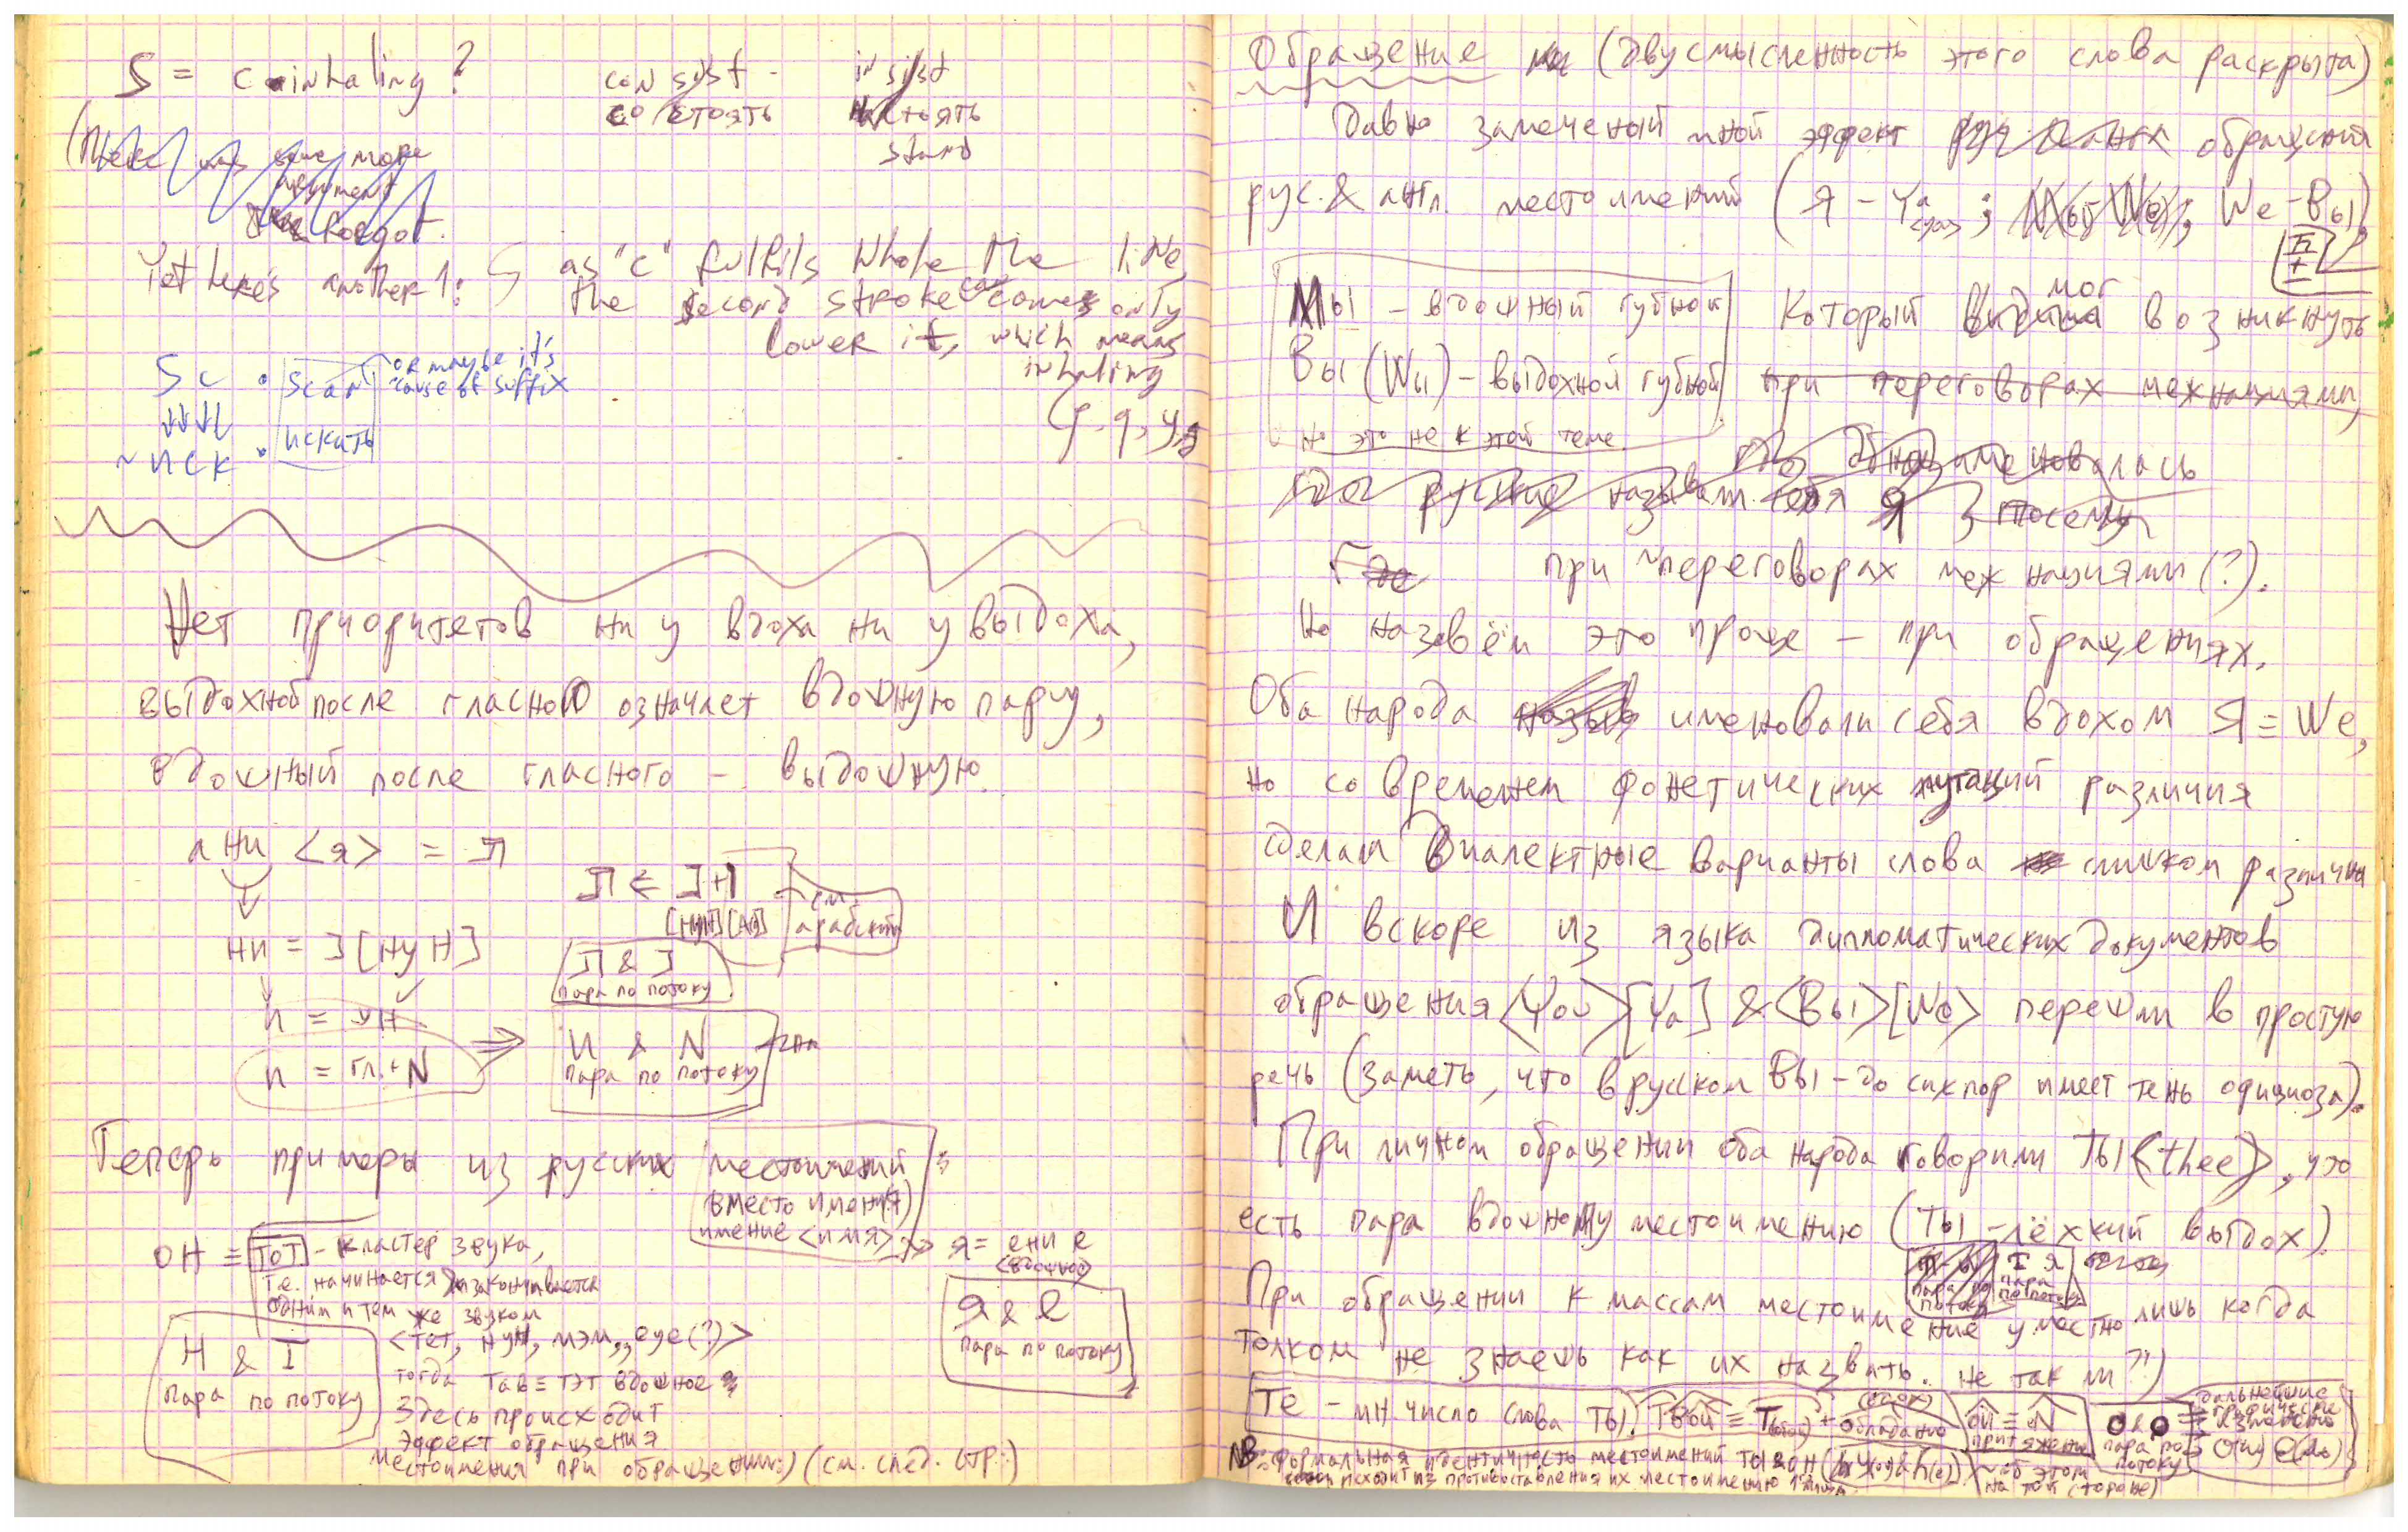 S = coinhaling?
consist - insist
состоять настоять
stand
(There was some more
argument
forgot.
Yet here's another 1: S as "c" fulfils whole the line,
the second stroke comes only
lower it, which means
inhaling
g, q, y, з
Sc • scan or maybe it's
cause of suffix
~ иск • искать
Нет приоритетов ни у вдоха ни у выдоха,
выдохной после гласной означает вдошную пару,
вдошный после гласного – выдошную.
ани <я> = Л
ни = J [нун]
[нун] [ай] см. арабский
Л & J
пара по потоку
и = гл. + N
И & N
пара по потоку
Теперь примеры из русских местоимений:
(вместо имения)
имение <имя>
я = ени е
<вдошное>
он ≡ тот - кластер звука,
т.е. начинается и заканчивается
одним и тем же звуком
<тет, нун, мэм, еуе(?)>
тогда тав ≡ тэт вдошное
Здесь происходит
эффект обращения
местоимения при обращении:) (см. след. стр.:)
H & T
пара по потоку
Я & е
пара по потоку
Обращение (двусмысленность этого слова раскрыта)
Давно замеченый мной эффект обращений
рус. & англ. местоимений (Я - Ya; We - Вы)
Мы - вдошный губной
Вы (Wы) - выдохной губной
но это не к этой теме
который мог возникнуть
при переговорах меж нациями,
где русские называли себя Я
Где при переговорах меж нациями (?).
Но назовём это проще - при обращениях.
Оба народа именовали себя вдохом Я ≡ We,
но со временем фонетических мутаций различия
сделали диалектные варианты слова слишком различны
И вскоре из языка дипломатических документов
обращения <you> [Ya] & <Вы> [We] перешли в простую
речь (заметь, что в русском Вы - до сих пор имеет тень официоза).
При личном обращении оба народа говорили Ты <thee>, что
есть пара вдошному местоимению (Ты - лёхкий выдох).
При обращении к массам местоимение уместно лишь когда
толком не знаешь как их назвать. Не так ли?)
Те - мн. число слова Ты.
(вдох)
обладание
он ≡ N
притяжение
O & O
пара по
потоку
дальнейшие
графические
изменения
NB: Формальная идентичность местоимений ты & он
исходит из противоставления их местоимению 1 лица
~ об этом
на той стороне)